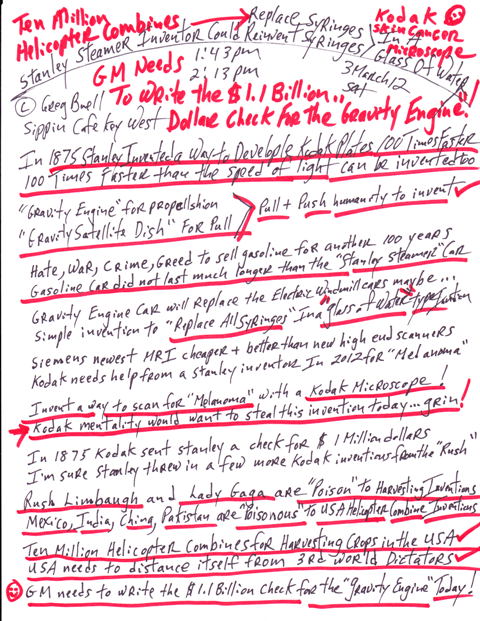 Ten Million
Helicopter Combines
Replace Syringes
Kodak
Skin Cancer
Microscope
Stanley Steamer Inventor Could Reinvent Syringes
In A
Glass Of Water
GM Needs
1:43pm
2:13pm
3 March 12
SAT
To Write the $1.1 Billion..
Dollar Check For the Gravity Engine!
(c) Greg Buell
Sippin Cafe Key West
In 1875 Stanley Invented a Way to Develople Kodak Plates 100 Times Faster
100 Times Faster than the speed of light can be invented too
"Gravity Engine" for propellshion
"Gravity Satellite Dish" For Pull
Pull + Push humanity to invent
Hate, War, Crime, Greed to sell gasoline for another 100 years
Gasoline Car did not last much longer than the "Stanley Steamer" Car
Gravity Engine Car will Replace the Electric Windmill cars maybe...
Simple invention to "Replace All Syringes" In a "glass of Water" type fusion
Siemens newest MRI cheaper + better than new high end scanners
Kodak needs help from a stanley inventor In 2012 for "Melanoma"
Invent a way to scan for "Melanoma" with a Kodak Microscope!
Kodak mentality would want to steal this invention today... grin!
In 1875 Kodak sent stanley a check for $1 Million dollars
I'm sure Stanley threw in a few more Kodak inventions from the "Rush"
Rush Limbaugh and Lady Gaga are "Poison" To Harvesting Inventions
Mexico, India, China, Pakistan are "Poisonous" to USA Helicopter Combine Inventions
Ten Million Helicopter Combines for Harvesting Crops in the USA
USA needs to distance itself from 3rd World Dictators
GM needs to write the $1.1 Billion Check for the "gravity Engine" Today!